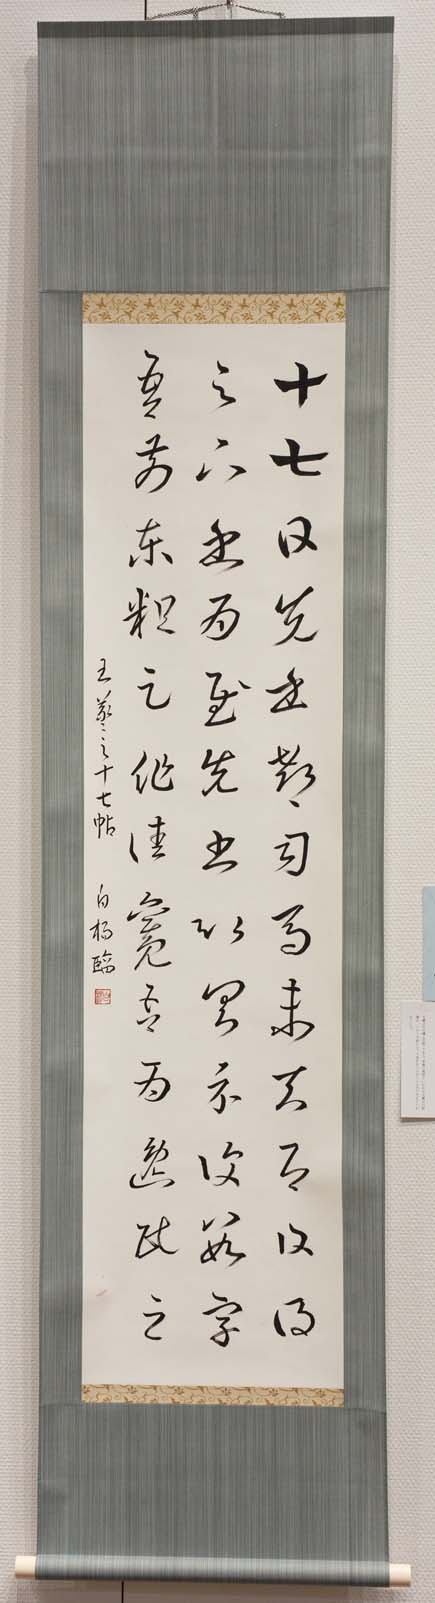 十七日先書郗司馬未去即日得
足下書為慰先書以具示復數字
吾前東粗足作佳觀吾為逸民之
王羲之十七帖 白楊臨